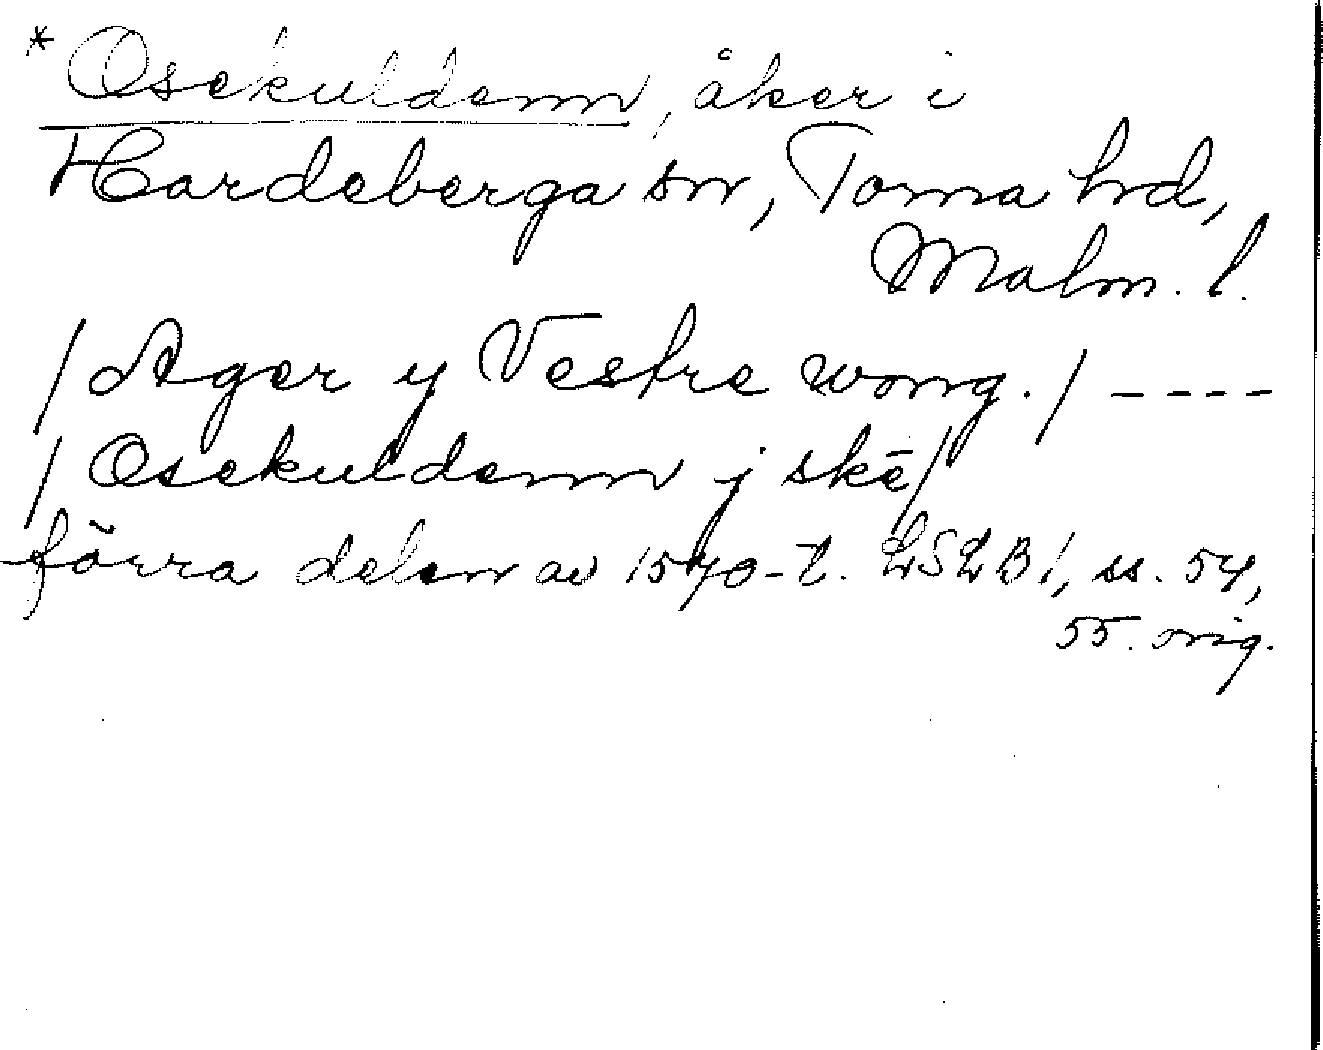 * Osekuldenn, åker i
Hardeberga sn, Torna hrd,
Malm. l.
/ Ager y Vestre wong. / ----
/ Osekuldenn j skē /
förra delen av 1570-t. LSLB 1, ss. 54,
55. orig.